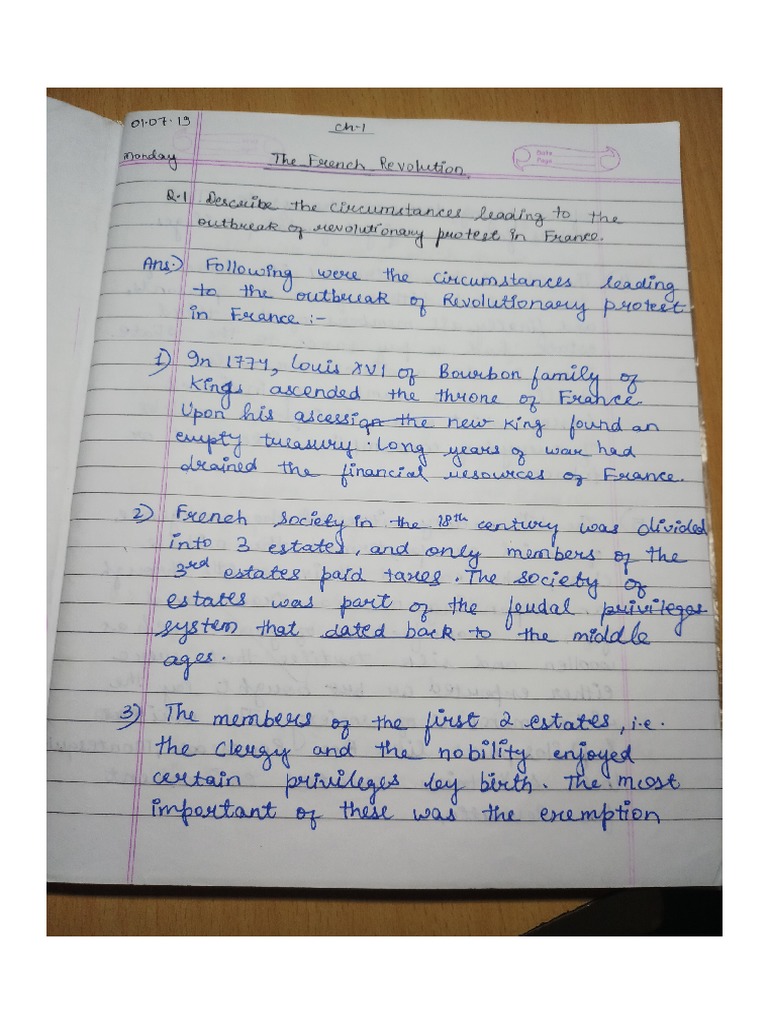 01.07.19
Ch-1
Monday
The French Revolution
Date
Page
Q.1 Describe the circumstances leading to the
outbreak of revolutionary protest in France.
Ans.) Following were the circumstances leading
to the outbreak of Revolutionary protest
in France :-
1) In 1774, Louis XVI of Bourbon family of
Kings ascended the throne of France.
Upon his ascession the new King found an
empty treasury. Long years of war had
drained the financial resources of France.
2) French society in the 18th century was divided
into 3 estates, and only members of the
3rd estates paid taxes. The society of
estates was part of the feudal privileges
system that dated back to the middle
ages.
3) The members of the first 2 estates, i.e.
the clergy and the nobility enjoyed
certain privileges by birth. The most
important of these was the exemption